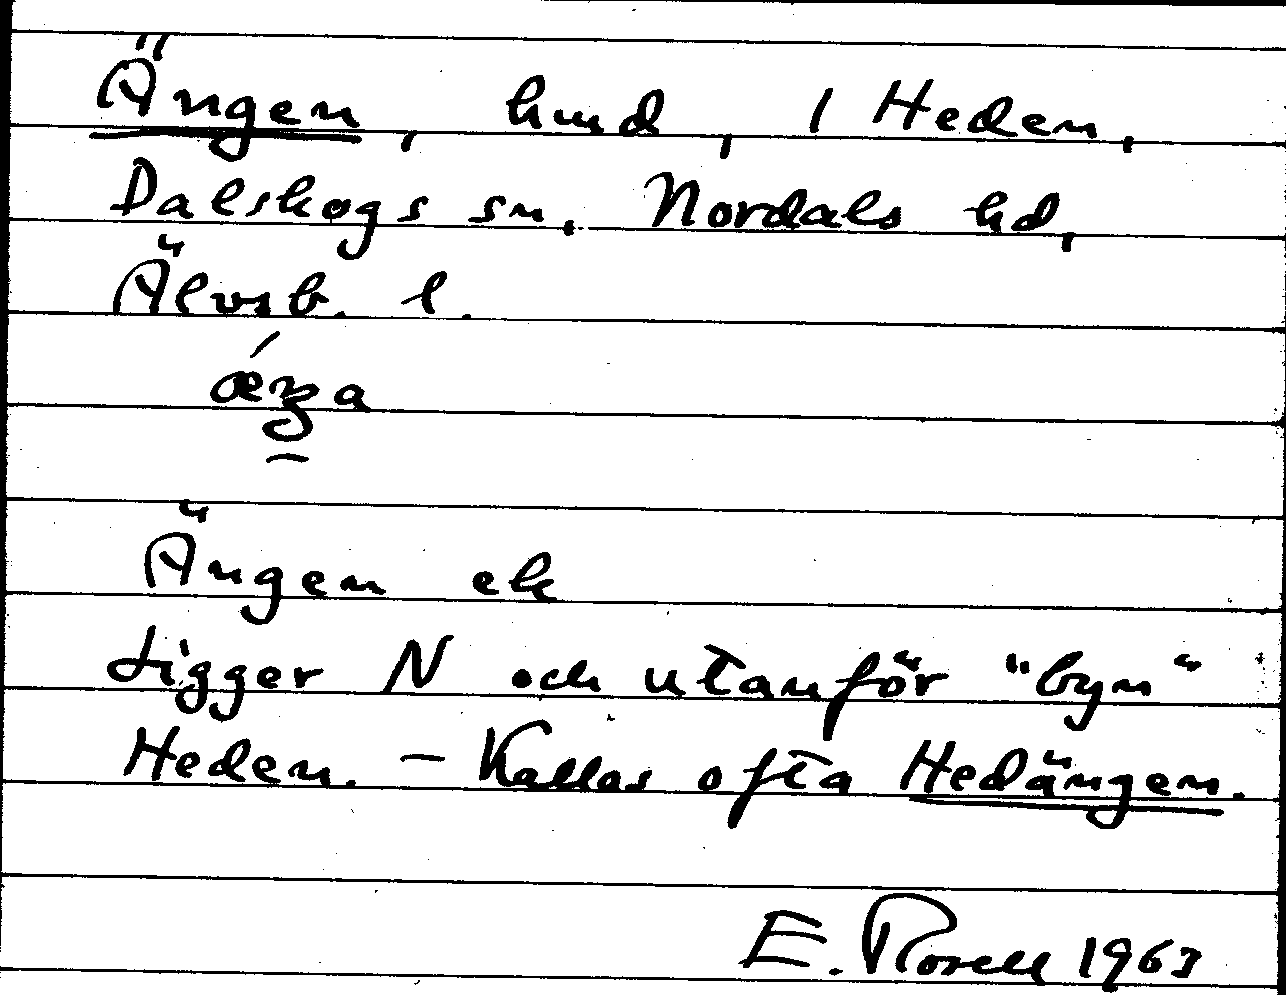 Ängen, hmd, 1 Heden,
Dalskogs sn. Nordals hd,
Älvsb. l.
Ängen ek
Ligger N och utanför "byn"
Heden. – Kallas ofta Hedängen.
E. Rosell 1963